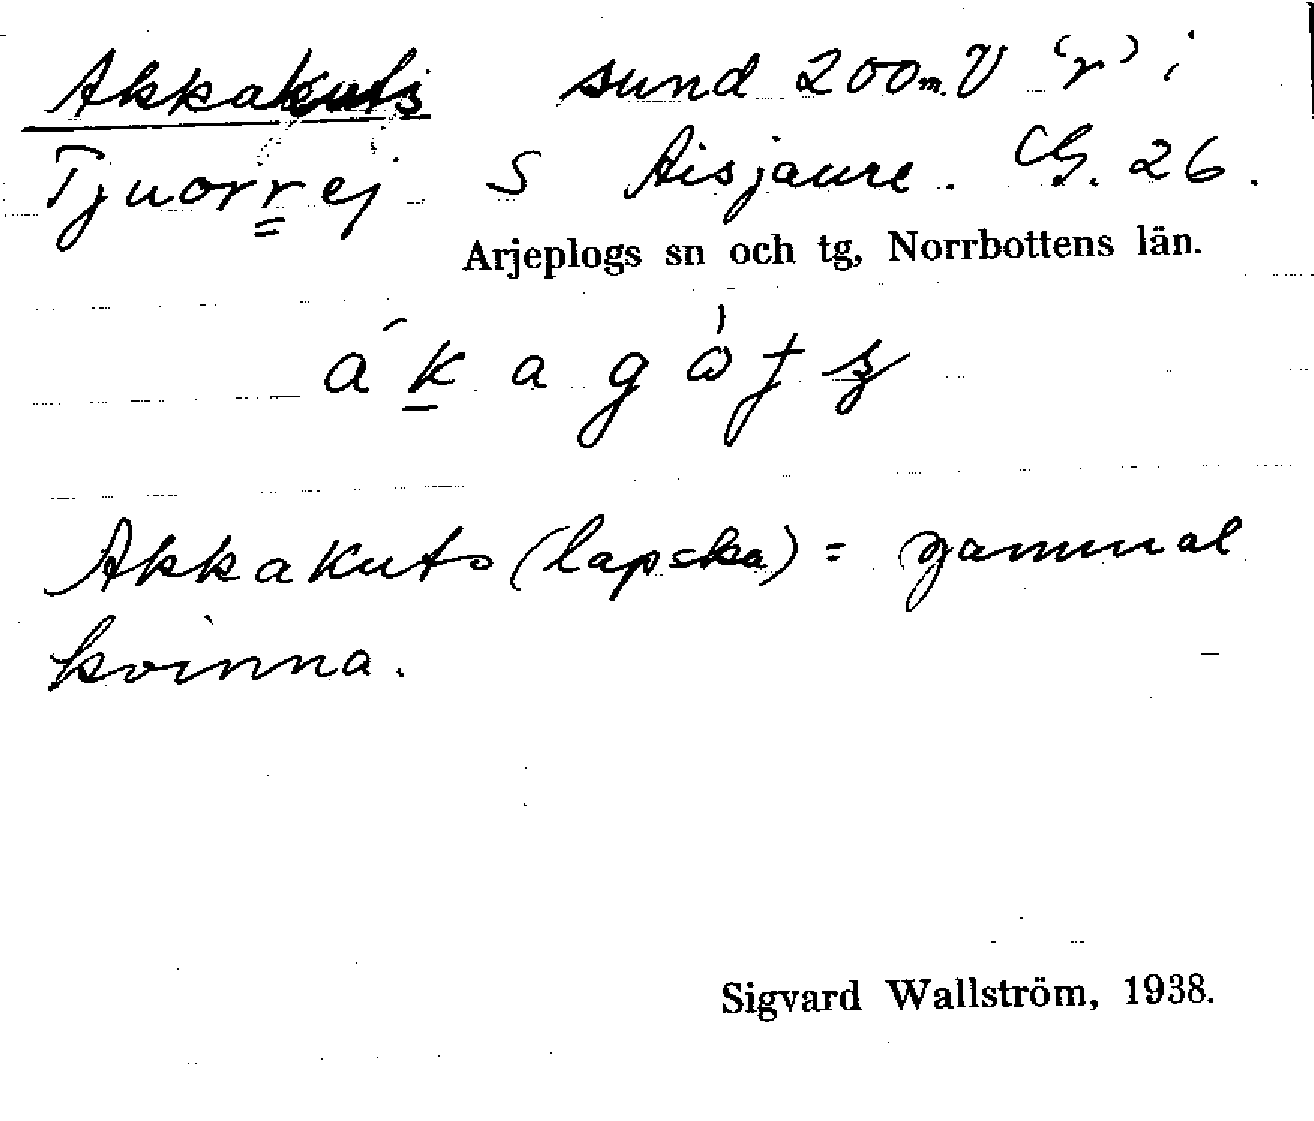 Akkakuts sund 200 m. V 'r' i
Tjuorrej S Aisjaure. G. 26.
Arjeplogs sn och tg, Norrbottens län.
á k a g ò t z
Akkakuts (lapska) = gammal
kvinna.
Sigvard Wallström, 1938.